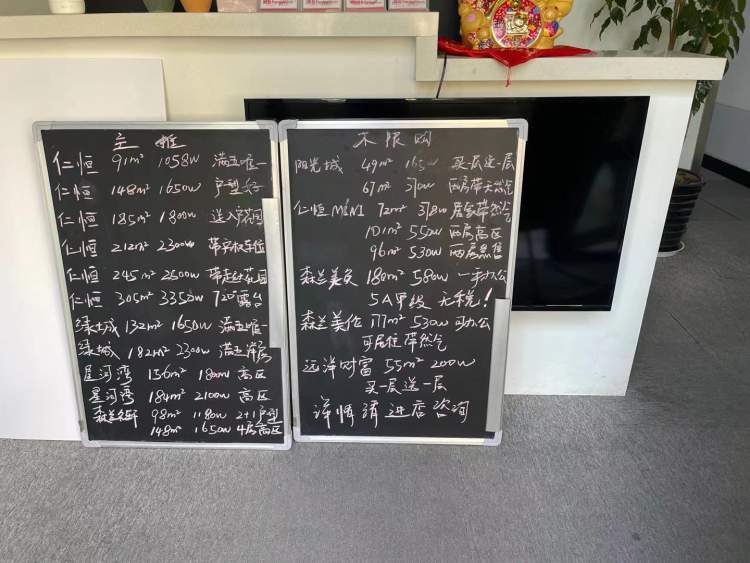 主推
仁恒 91m² 1058W 满五唯一
仁恒 148m² 1650W 户型好
仁恒 185m² 1800W 送入户花园
仁恒 212m² 2300W 带产权车位
仁恒 245m² 2600W 带走丝花园
仁恒 305m² 3350W 720°露台
绿城 132m² 1650W 满五唯一
绿城 182m² 2300W 满五
星河湾 136m² 1800W 高区
星河湾 184m² 2100W 高区
森兰名轩 98m² 1180W 2+1户型
148m² 1650W 4房高区
不限购
阳光城 49m² 165W 买一层送一层
67m² 270W 两房带天然气
仁恒MINI 72m² 378W 居家带然气
101m² 550W 两房高区
96m² 530W 两房急售
森兰美奂 180m² 580W 一手办公
5A甲级 无税!
森兰美伦 177m² 530W 可办公
可居住 带然气
远洋财富 55m² 200W
买一层送一层
详情请进店咨询